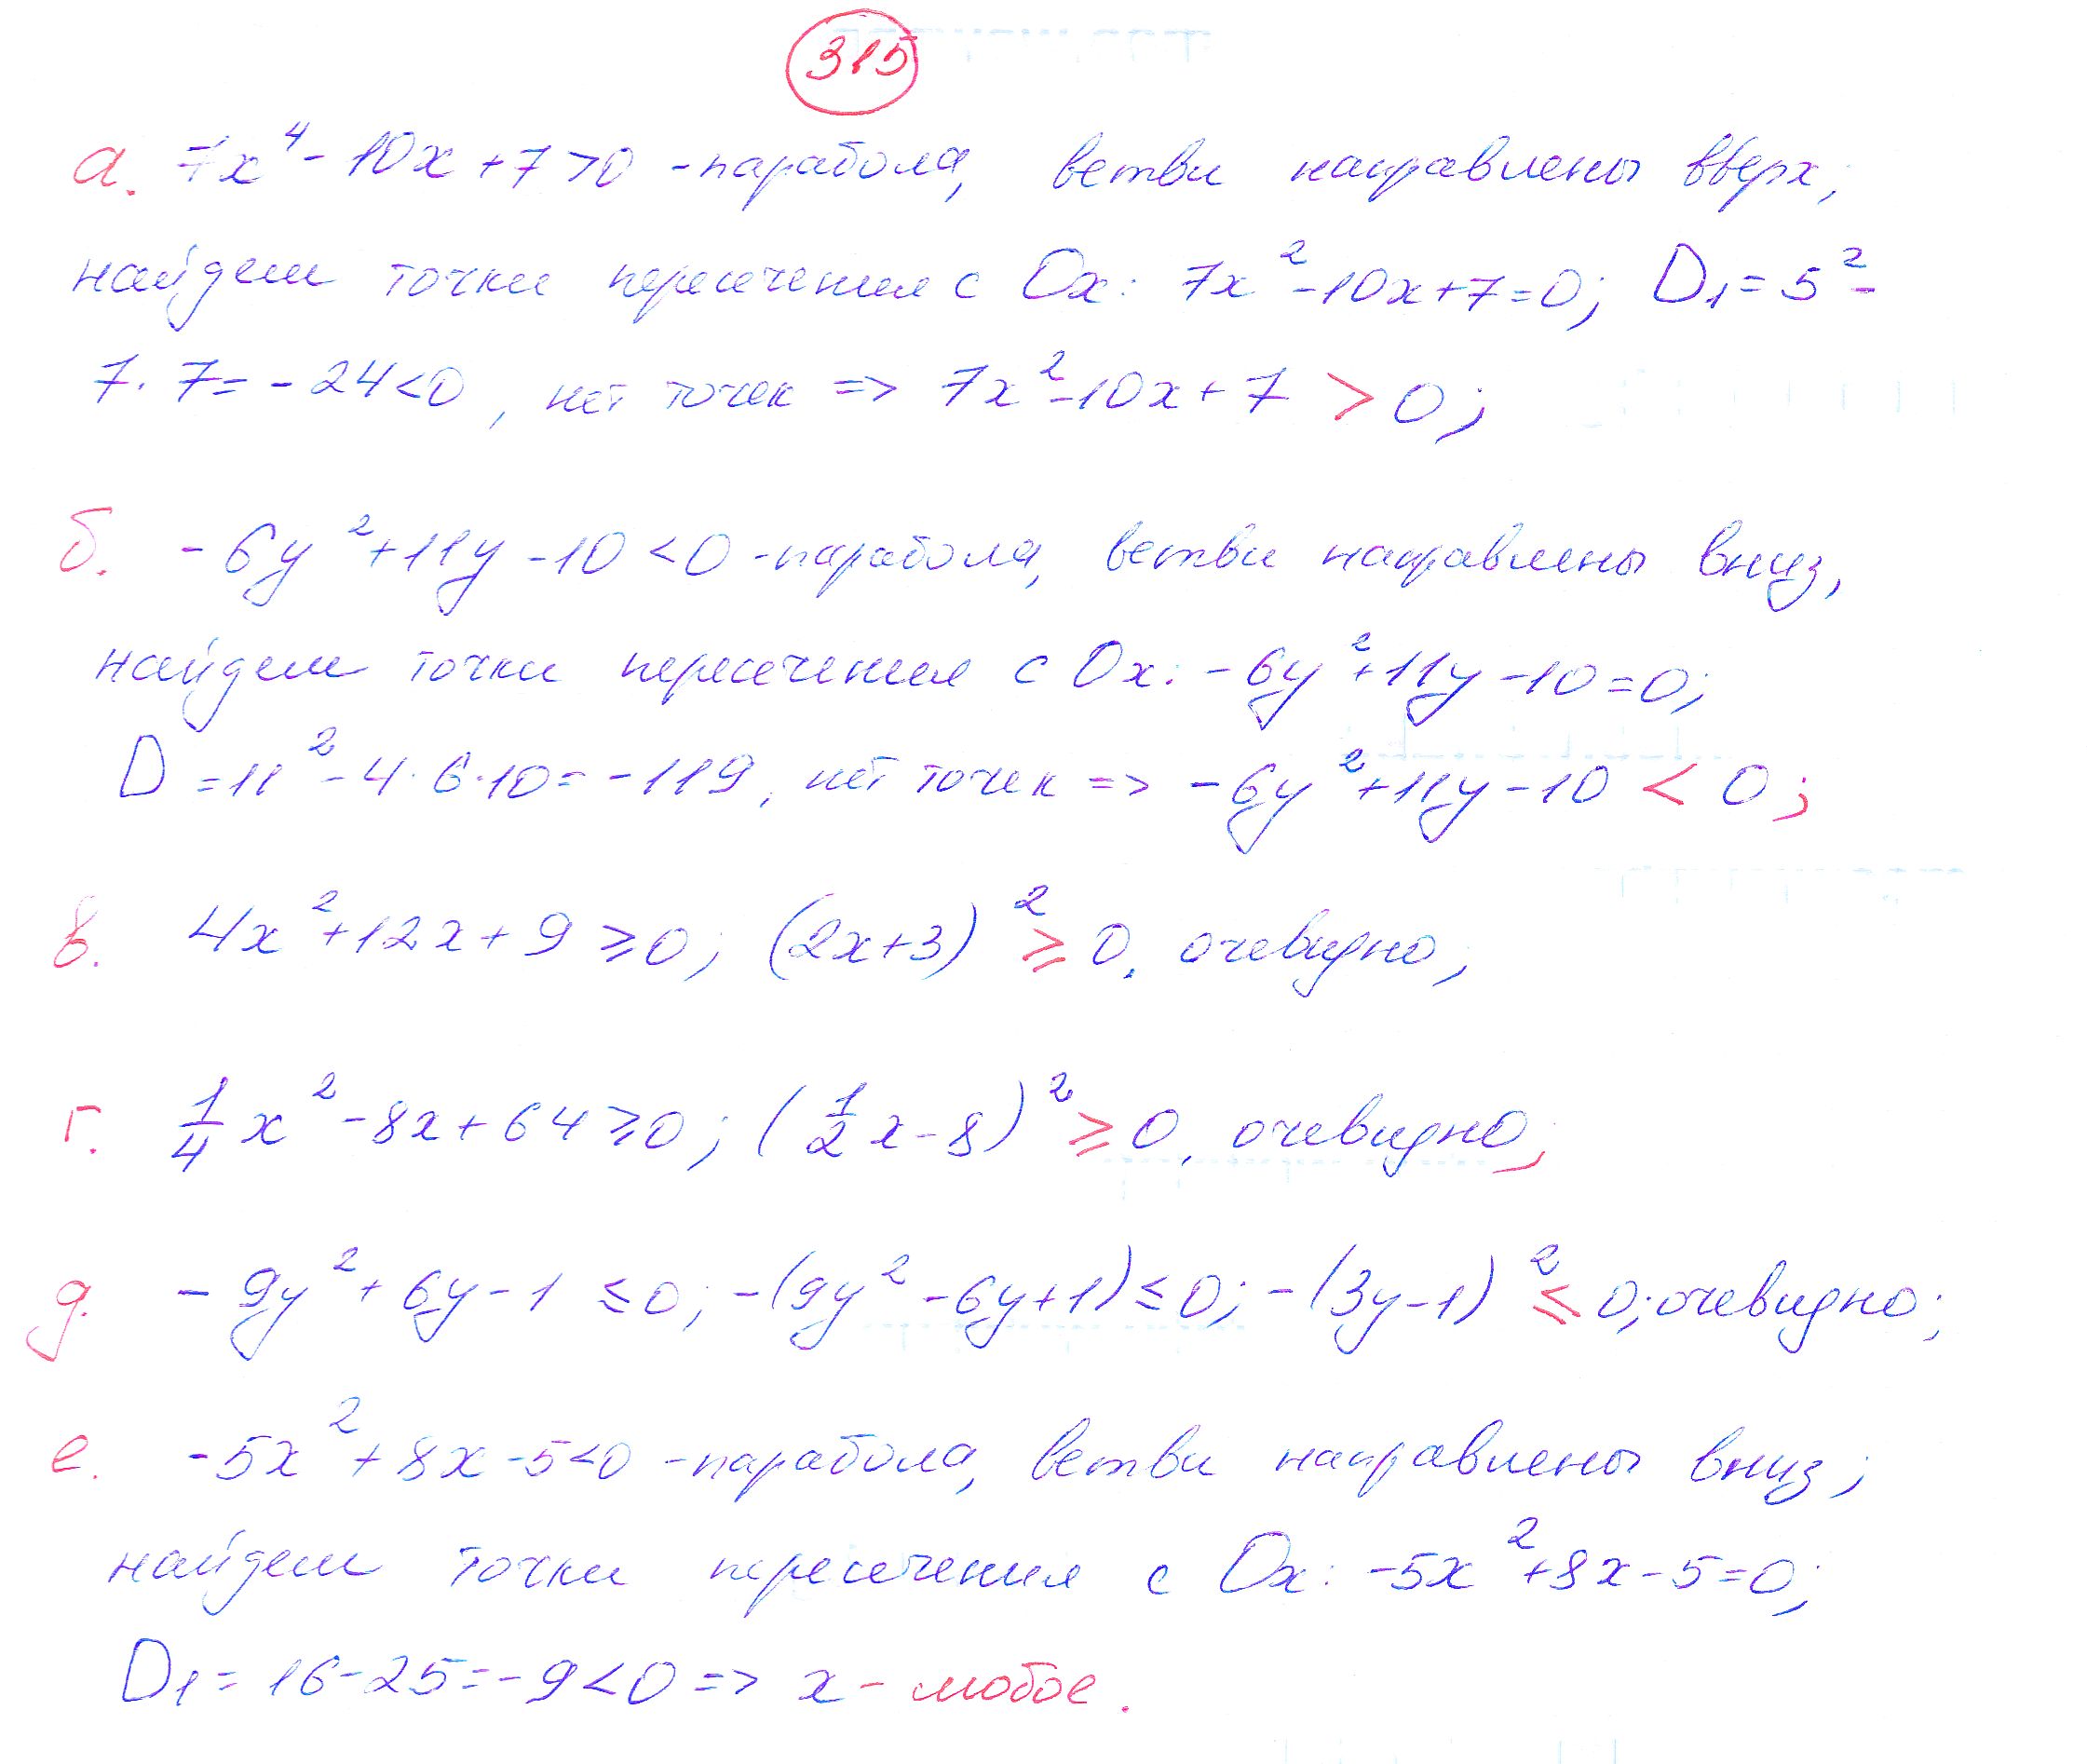 315
а. 7x⁴ - 10x + 7 > 0 - парабола, ветви направлены вверх;
найдем точки пересечения с Ox: 7x² - 10x + 7 = 0; D₁ = 5² -
7 · 7 = - 24 < 0, нет точек => 7x² - 10x + 7 > 0;
б. - 6y² + 11y - 10 < 0 - парабола, ветви направлены вниз,
найдем точки пересечения с Ox: - 6y² + 11y - 10 = 0;
D = 11² - 4 · 6 · 10 = - 119, нет точек => - 6y² + 11y - 10 < 0;
в. 4x² + 12x + 9 ⩾ 0; (2x + 3)² ⩾ 0, очевидно;
г. 1/4 x² - 8x + 64 ⩾ 0; (1/2 x - 8)² ⩾ 0, очевидно;
д. - 9y² + 6y - 1 ⩽ 0; - (9y² - 6y + 1) ⩽ 0; - (3y - 1)² ⩽ 0; очевидно;
е. - 5x² + 8x - 5 < 0 - парабола, ветви направлены вниз;
найдем точки пересечения с Ox: - 5x² + 8x - 5 = 0;
D₁ = 16 - 25 = - 9 < 0 => x - любое.